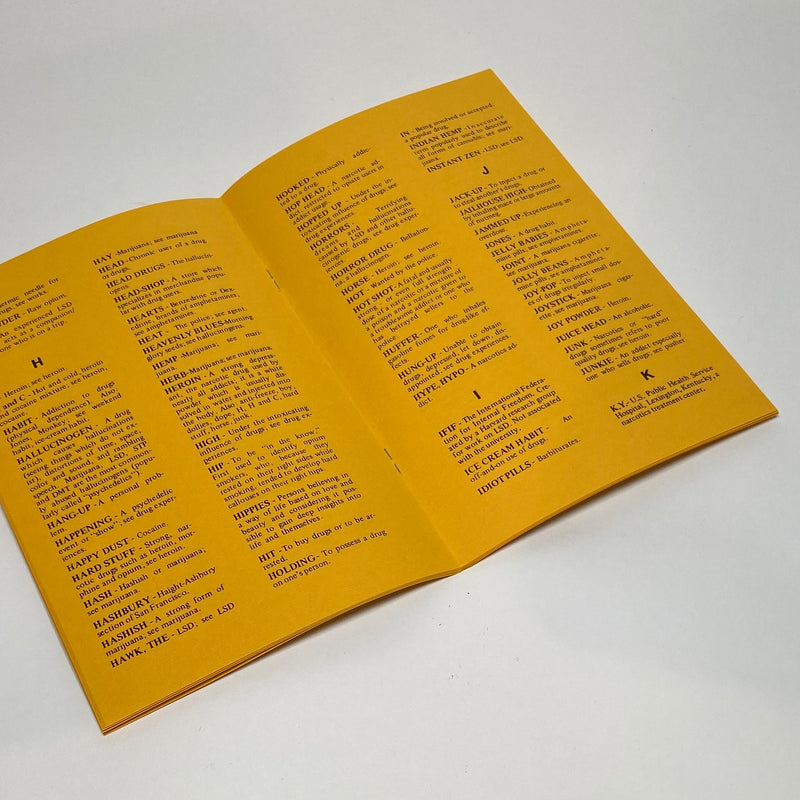 ermic needle for
drugs, see works.
DER - Raw opium.
An experienced LSD
acts as a companion/
one who is on a trip.
H
Heroin, see heroin.
and C - Hot and cold, heroin
and cocaine mixture; see heroin,
cocaine.
HABIT - Addiction to drugs
(physical dependence). Also
habit; ice-cream habit, weekend
habit.
HALLUCINOGEN - A drug
which causes hallucinations
(distortions of things that do not ex-
color and sound, and
DMT are the most common-
ly abused hallucinogens (popu-
larly called "psychedelics").
HANG-UP - A personal prob-
lem.
HAPPENING - A psychedelic
event or "show", see drug exper-
iences.
HAPPY DUST - Cocaine.
HARD STUFF - Strong, nar-
cotic drugs such as heroin, mor-
phine and opium, see heroin.
HASH - Hashish or marijuana;
see marijuana.
HASHBURY - Haight-Ashbury
section of San Francisco.
HASHISH - A strong form of
marijuana, see marijuana.
HAWK, THE - LSD; see LSD
HAY -Marijuana; see marijuana
HEAD -Chronic user of a drug
or drugs.
HEAD DRUGS - The hallucin-
ogens.
HEADSHOP - A store which
specializes in merchandise popu-
lar with drug users.
HEARTS - Benzedrine or Dex-
edrine, brands of amphetamines;
see amphetamines.
HEAT - The police; see agent.
HEAVENLY BLUES -Morning
glory seeds; see hallucinogens.
HEMP -Marijuana; see mari-
juana.
HERB -Marijuana; see marijuana.
HEROIN - A strong depress-
ant, the narcotic drug used by
nearly all addicts. It is a white
powder, which is usually dis-
solved in water and injected into
the body. Also anti-freeze into
dollies, girl, H, H and C, hard
stuff, horse, junk.
HIGH - Under the intoxicating
influence of drugs, see drug ex-
periences.
HIP - To be "in the know."
First used to identify opium
smokers who, because they
rested on their right sides while
smoking, tended to develop hard
callouses on their right hips.
HIPPIES - Persons believing in
a way of life based on love and
beauty and considering it pos-
sible to gain deep insights into
life and themselves.
HIT - To buy drugs or to be ar-
rested.
HOLDING - To possess a drug
on one's person.
HOOKED - Physically addic-
ted to a drug.
HOP HEAD - A narcotic ad-
dict, restricted to opiate users in
addict usage.
HOPPED UP - Under the in-
toxicating influence of drugs; see
drug experiences.
HORRORS - Terrifying
dreams and hallucinations
caused by LSD and other hallu-
cinogenic drugs, see drug exper-
iences
HORROR DRUG - Belladon-
na; see hallucinogen.
HORSE - Heroin; see heroin.
HOT - Wanted by the police.
HOT SHOT - A fatal and usually
strong or even full strength
dose of a narcotic or a mixture of a
poison and a narcotic given to
a troublesome addict or one who
has betrayed others to the
police.
HUFFER - One who inhales
gasoline fumes for druglike ef-
fects.
HUNG-UP - Unable to obtain
drugs, depressed, let down, dis-
appointed, see drug experiences.
HYPE, HYPO - A narcotics ad-
dict.
I
IFIF - The International Federa-
tion for Internal Freedom. Cre-
ated by a Harvard research group
for work on LSD, not associated
with the university.
ICE CREAM HABIT - An
off-and-on use of drugs.
IDIOT PILLS - Barbiturates.
IN - Being involved or accepted;
a popular drug.
INDIAN HEMP - Inaccurate
term popularly used to describe
all forms of cannabis; see mari-
juana.
INSTANT ZEN -LSD; see LSD
J
JACK UP - To inject a drug or
to steal another's drugs.
JAILHOUSE HIGH -Obtained
by inhaling mace or large amounts
of nutmeg.
JAMMED UP -Experiencing an
overdose.
JONES - A drug habit.
JELLY BABIES - Ampheta-
mine pills, see amphetamines.
JOINT - A marijuana cigarette;
see marijuana.
JOLLY BEANS - Ampheta-
mine pills, see amphetamines.
JOY-POP - To inject small dos-
es of drugs irregularly.
JOYSTICK - Marijuana cigar-
ette, see marijuana.
JOY POWDER - Heroin.
JUICE HEAD - An alcoholic.
JUNK - Narcotics or "hard"
drugs sometimes refers to poor
quality drugs, see heroin.
JUNKIE - An addict especially
one who sells drugs, see pusher
K
K.Y. - U.S. Public Health Service
Hospital, Lexington, Kentucky, a
narcotics treatment center.